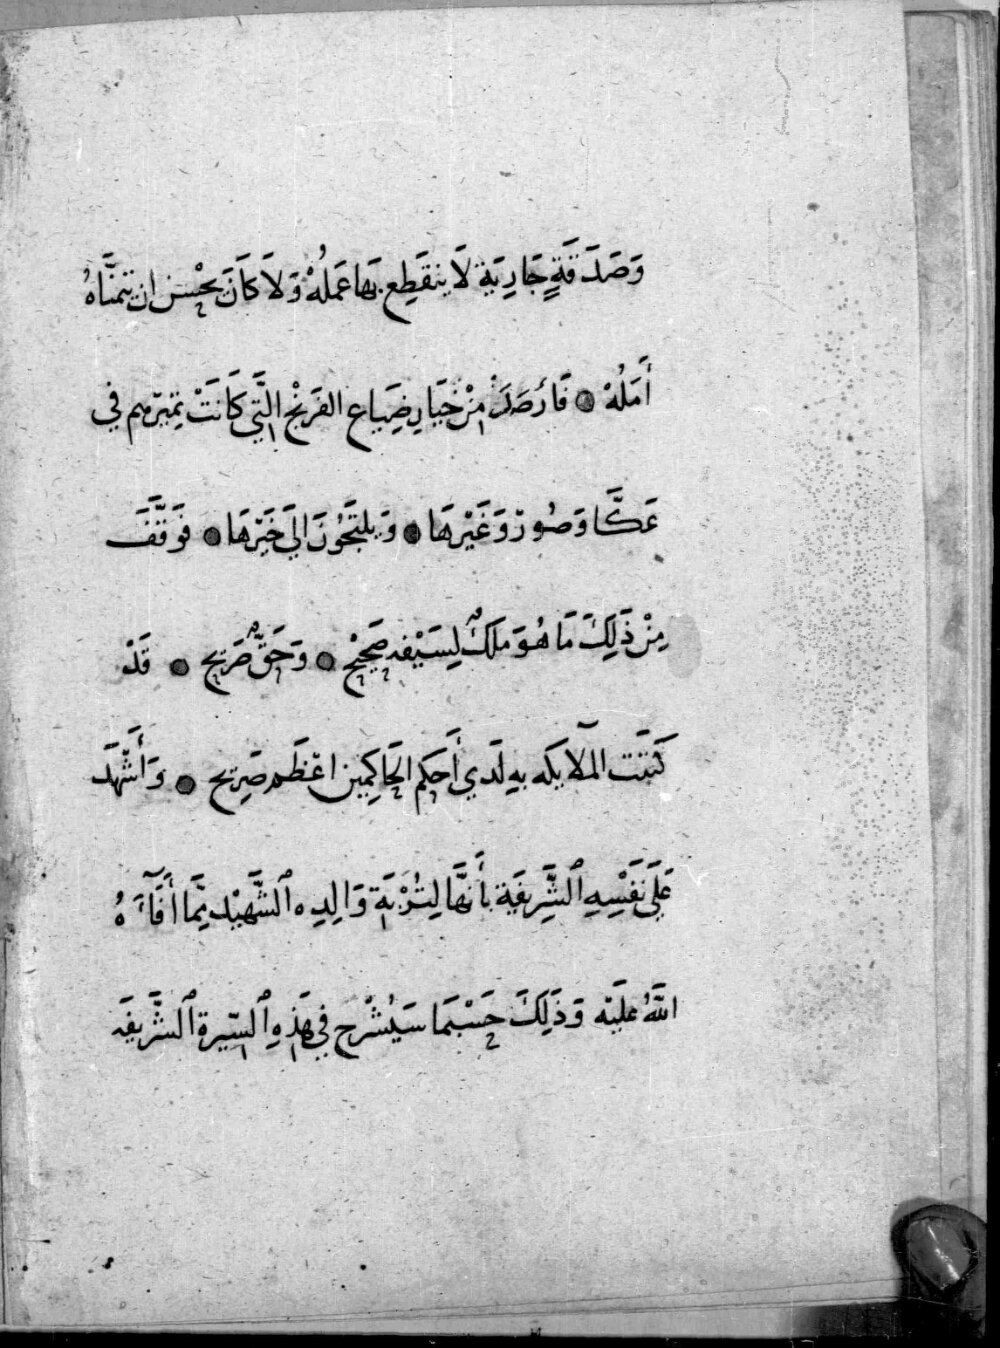 وَصَدَقَةٍ جَارِيَة لَا ينقَطِع بهَا عَمَلُهْ وَلَا كَانَ يحْسن ان يتمنَّاهُ
أَمَلُهْ ● فَأرْصَدَ مِنْ خيَارِ ضِيَاع الفَرنْج الَّتي كَانَتْ تميرهم في
عَكَّا وَصُورْ وَغَيْرهَا ● وَيلتجُونَ الَي خَيْرهَا ● فَوَقَّفَ
مِنْ ذَلِكَ مَا هُوَ مَلكٌ لِسَيْفه صَحِيْح ● وَحَقٌّ صَرِيح ● قَدْ
كَتَبَت المَلآيكه بهِ لَدي أَحكم الحَاكِمِين اعْظَم ضَرِيح ● وَأَشْهَدَ
عَلَي نَفْسِهِ ٱلشَّرِيفَة بأَنهَّا لِتُرْبَة وَالِدِه ٱلشَّهِيْد ممَّا أَفَآءَهُ
اللَّهُ عليَه وَذَلِكَ حَسْبَمَا سَيُشْرح فِي هَذِهِ ٱلسِّيرة ٱلشَّرِيفَه